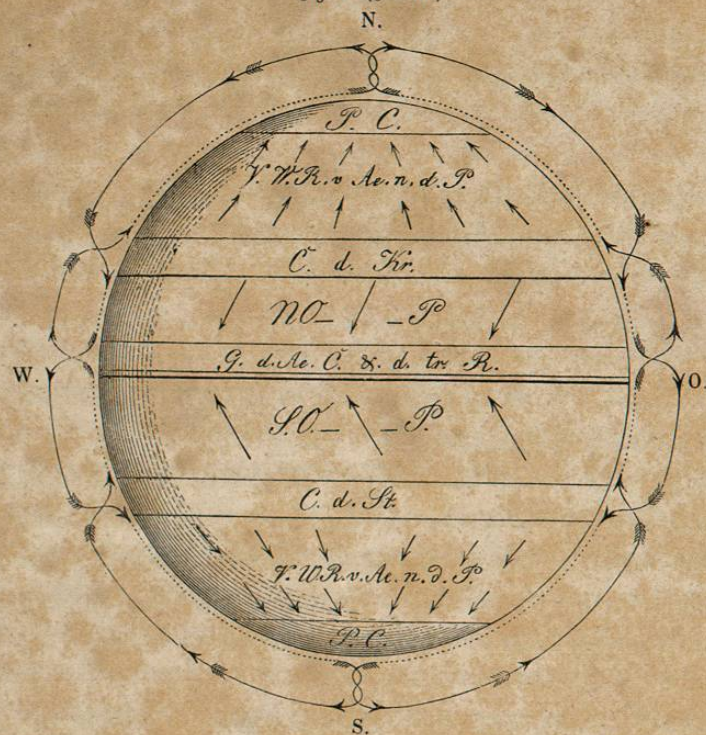 N.
P. C.
V. W. R. v. Ae. n. d. P.
C. d. Kr.
NO_ _P
G. d. Ae. C. & d. tr. R.
W.
O.
S.O._ _P.
C. d. St.
V. W. R. v. Ae. n. d. P.
P. C.
S.